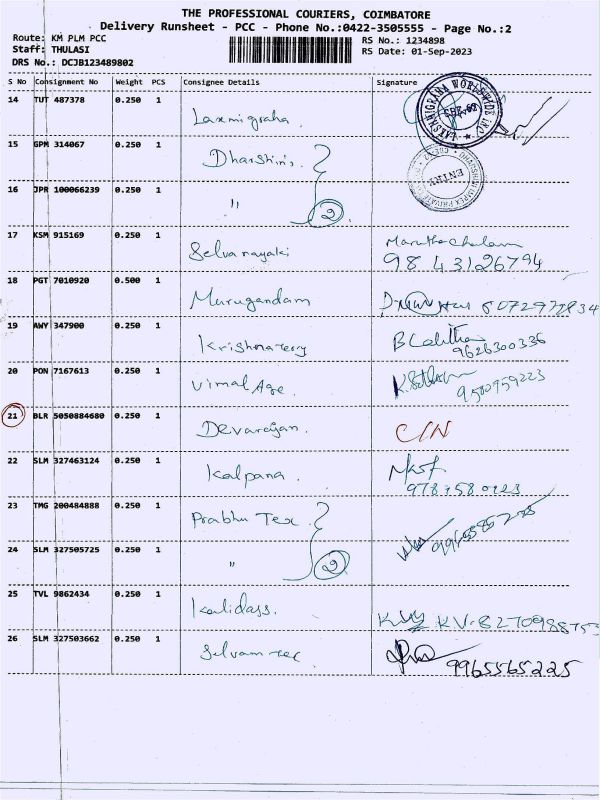 THE PROFESSIONAL COURIERS, COIMBATORE
Delivery Runsheet - PCC - Phone No.:0422-3505555 - Page No.:2
Route: KM PLM PCC
Staff: THULASI
DRS No.: DCJB123489802
RS No.: 1234898
RS Date: 01-Sep-2023
S No Consignment No Weight PCS Consignee Details Signature
14 TUT 487378 0.250 1 Laxmigraha. LAKSHMIGRAHA WORLDWIDE INC
15 GPM 314067 0.250 1 Dharshini's ENTRY
16 JPR 100066239 0.250 1 " 2
17 KSM 915169 0.250 1 Selvanayaki Maruthachalam
98 43126794
18 PGT 7010920 0.500 1 Murugandam
19 AWY 347900 0.250 1 B Lalitha
9626300336
20 PON 7167613 0.250 1 Vimal Age.
9500959223
21 BLR 5050884680 0.250 1 Devarajan. C/N
22 SLM 327463124 0.250 1 Kalpana.
23 TMG 200484888 0.250 1 Prabhu Tex
24 SLM 327505725 0.250 1 " 2
25 TVL 9862434 0.250 1 Kalidass.
26 SLM 327503662 0.250 1 Selvam Tex
9965565225